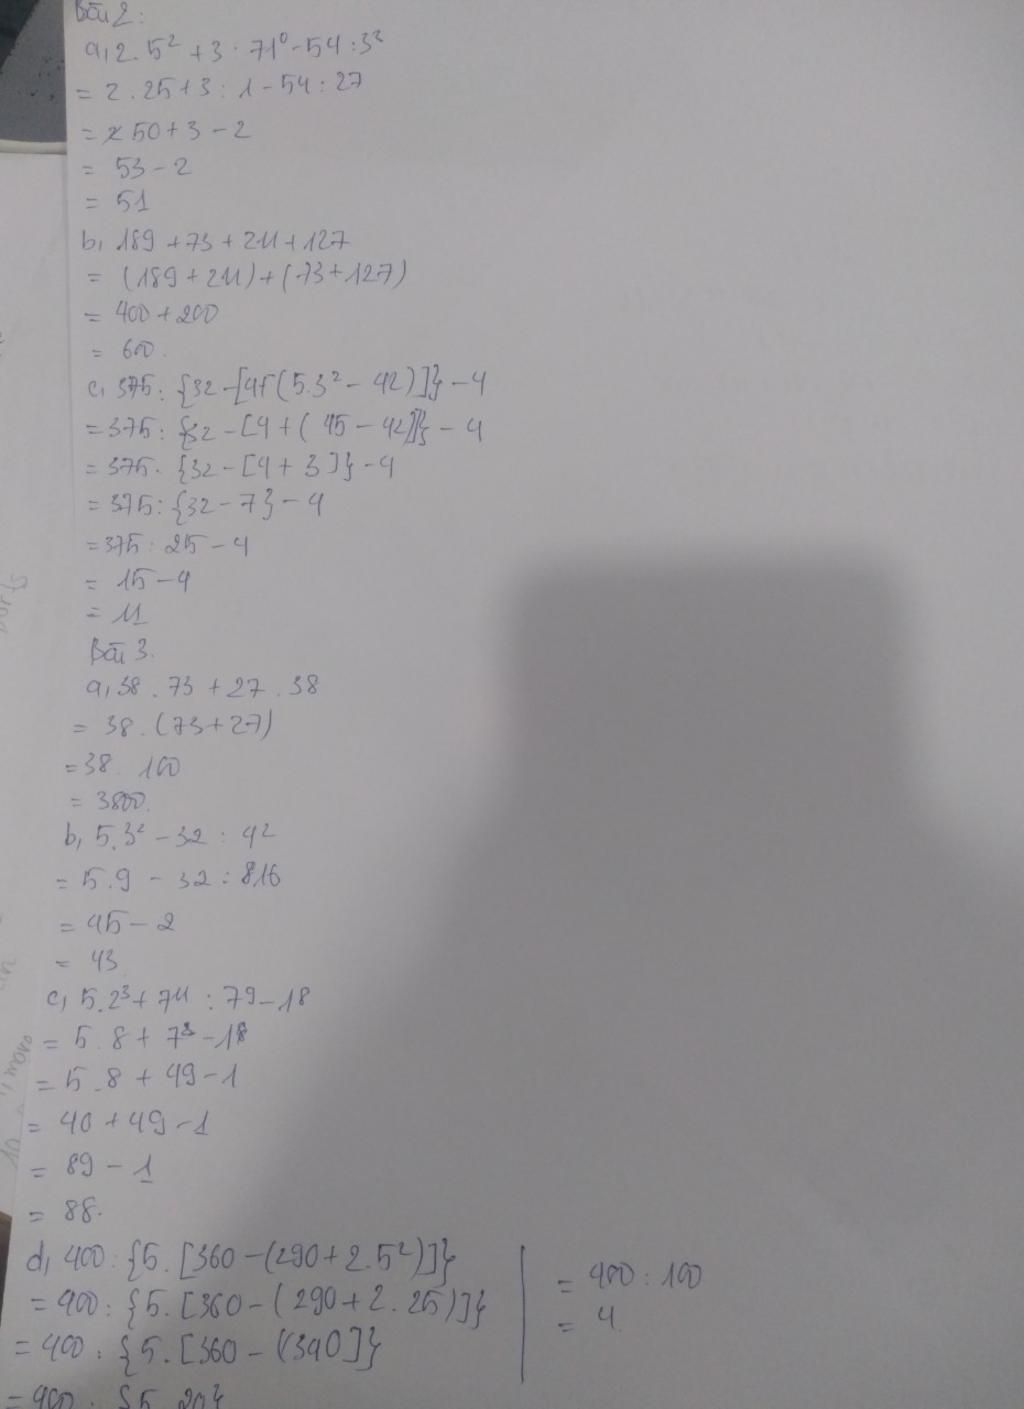 Bài 2:
a, 2. 5² + 3 · 71⁰ - 54 : 3³
= 2 . 25 + 3 : 1 - 54 : 27
= 50 + 3 - 2
= 53 - 2
= 51
b, 189 + 73 + 211 + 127
= (189 + 211) + (73 + 127)
= 400 + 200
= 600.
c, 375 : {32 - [4 + (5.3² - 42)]} - 4
= 375 : {32 - [4 + ( 45 - 42)]} - 4
= 375 . {32 - [4 + 3 ]} - 4
= 375 : {32 - 7} - 4
= 375 : 25 - 4
= 15 - 4
= 11
Bài 3.
a, 38 . 73 + 27 . 38
= 38 . (73 + 27)
= 38 . 100
= 3800.
b, 5.3² - 32 : 4²
= 5.9 - 32 : 16
= 45 - 2
= 43
c, 5.2³ + 7¹¹ : 7⁹ - 1⁸
= 5.8 + 7² - 1⁸
= 5.8 + 49 - 1
= 40 + 49 - 1
= 89 - 1
= 88.
d, 400 : {5. [360 - (290 + 2.5²)]}
= 400 : {5. [360 - ( 290 + 2. 25)]}
= 400 : {5. [360 - (340]}
= 400 : {5. 20}
= 400 : 100
= 4.